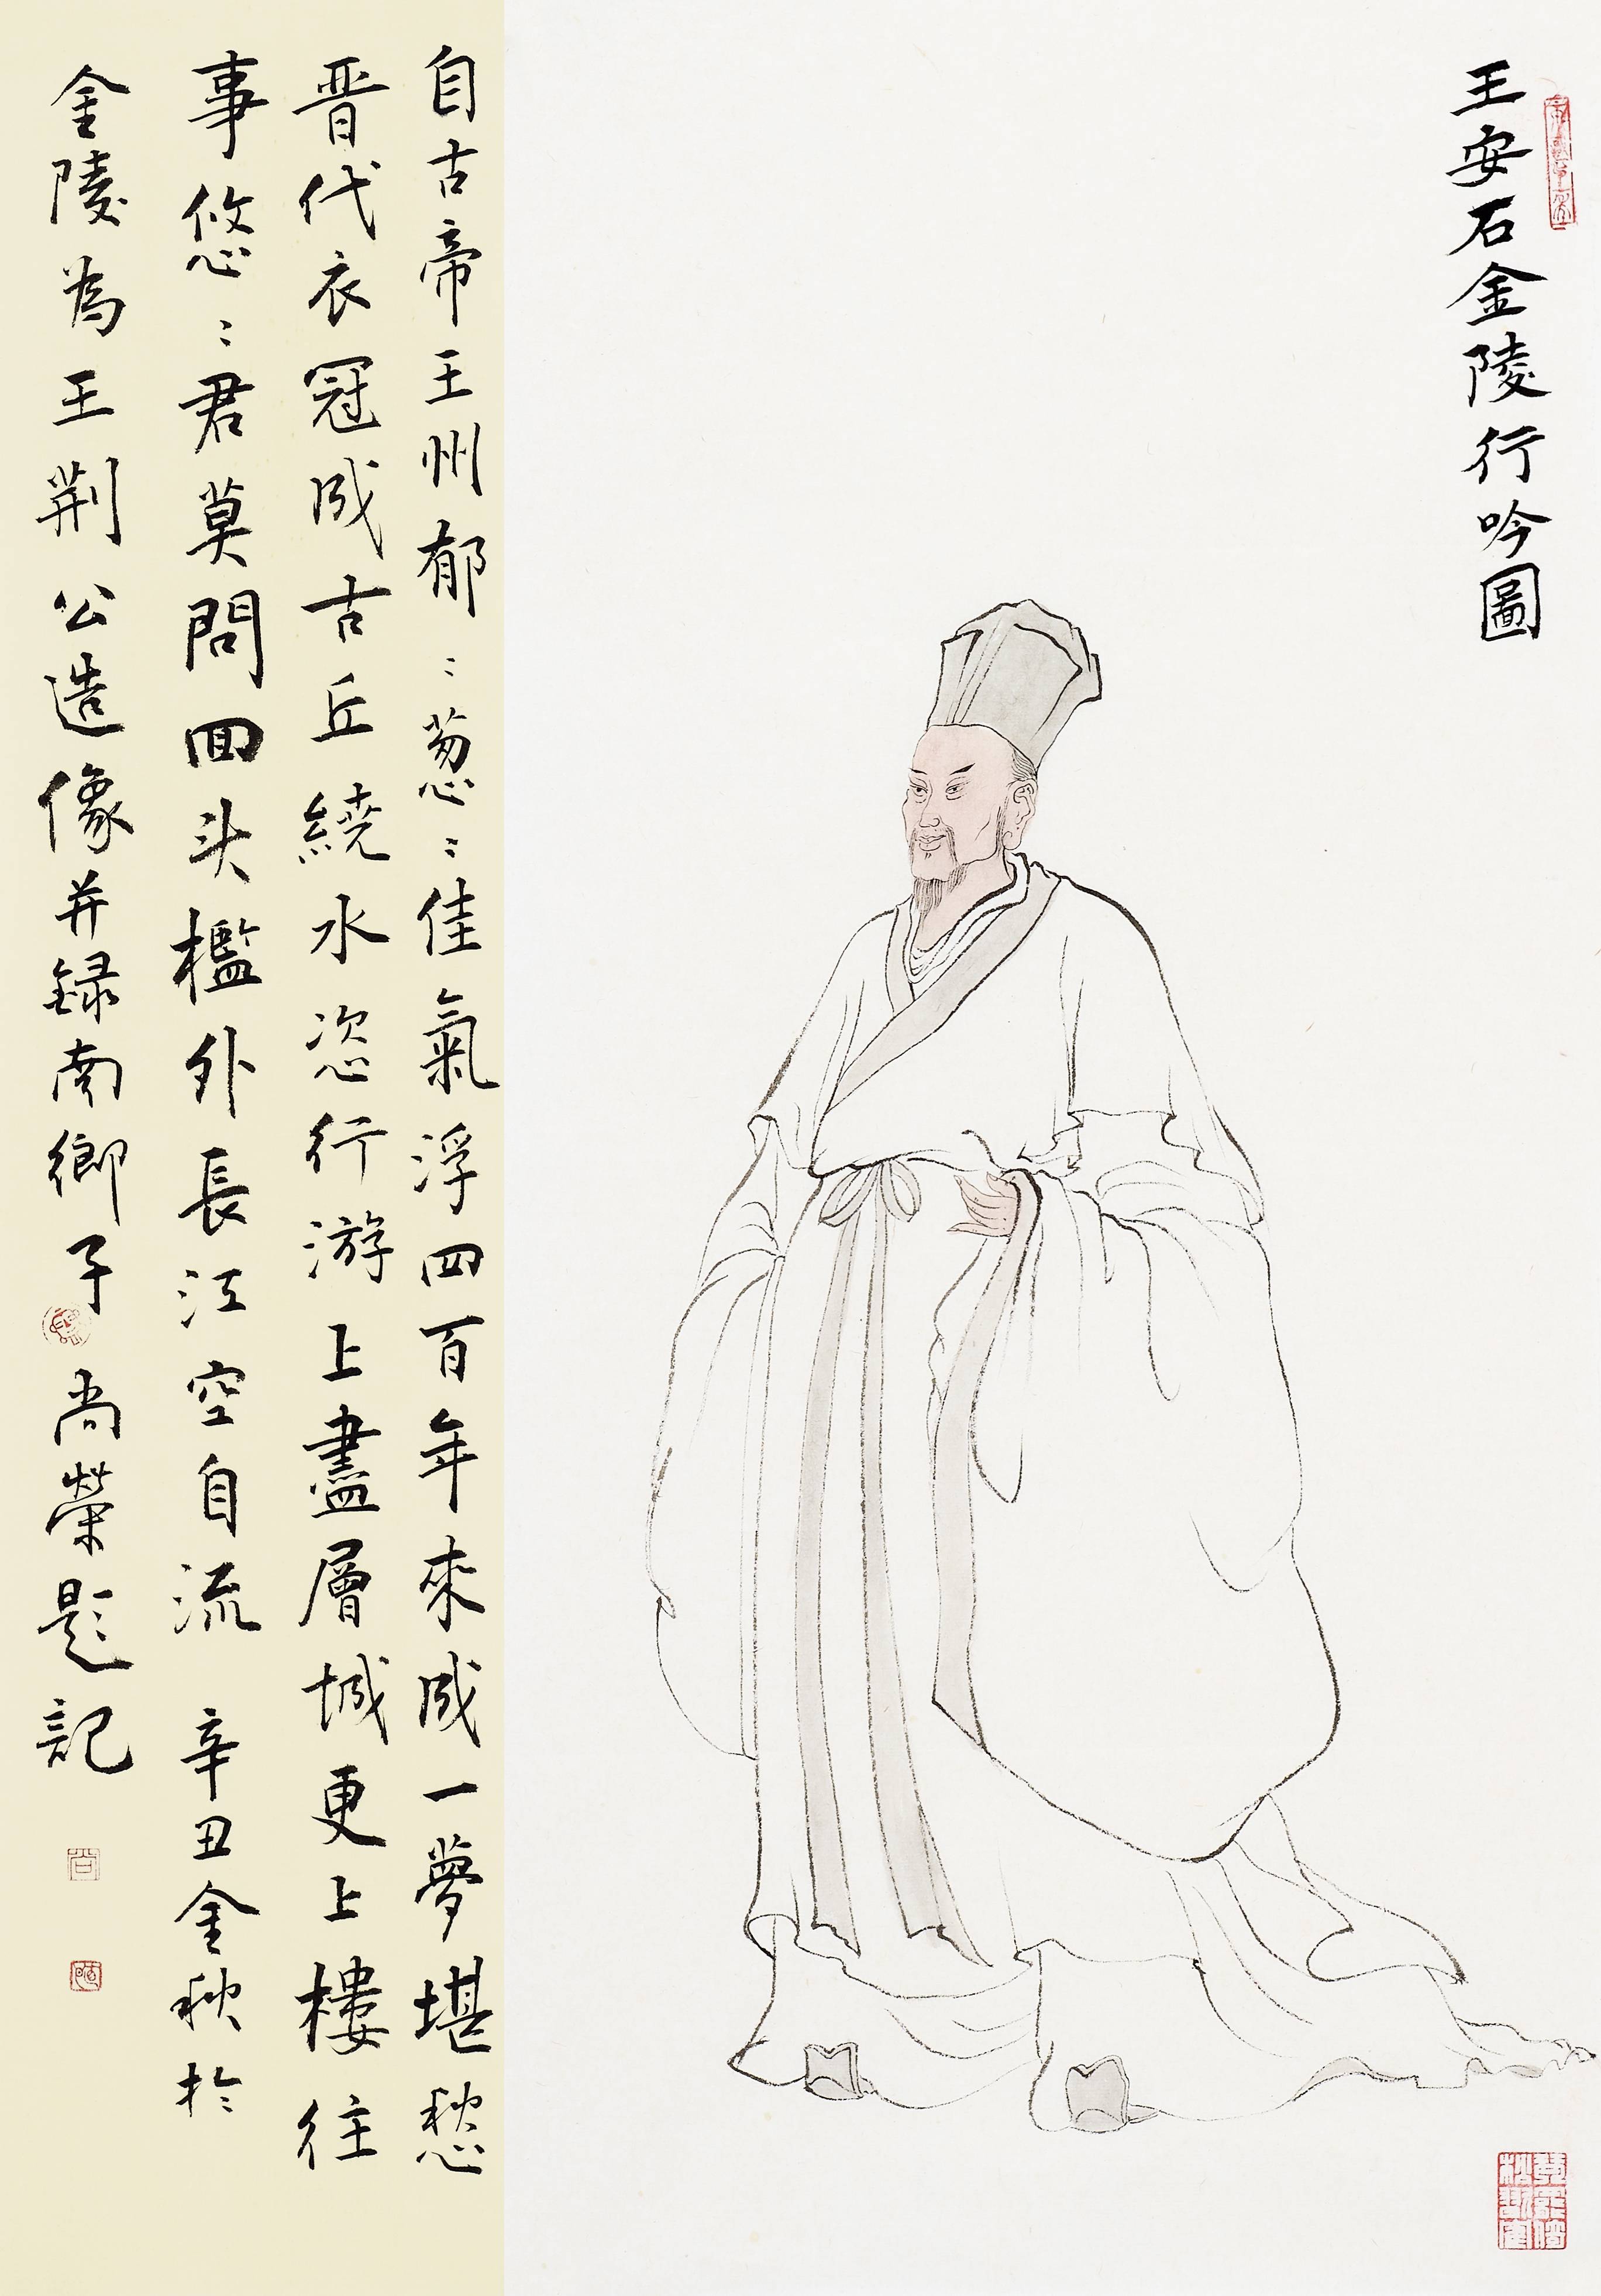 王安石金陵行吟圖
自古帝王州郁〻葱〻佳氣浮四百年來成一夢堪愁
晋代衣冠成古丘繞水恣行游上盡層城更上樓往
事悠〻君莫問回头檻外長江空自流 辛丑金秋於
金陵為王荆公造像并録南鄉子 尚榮題記